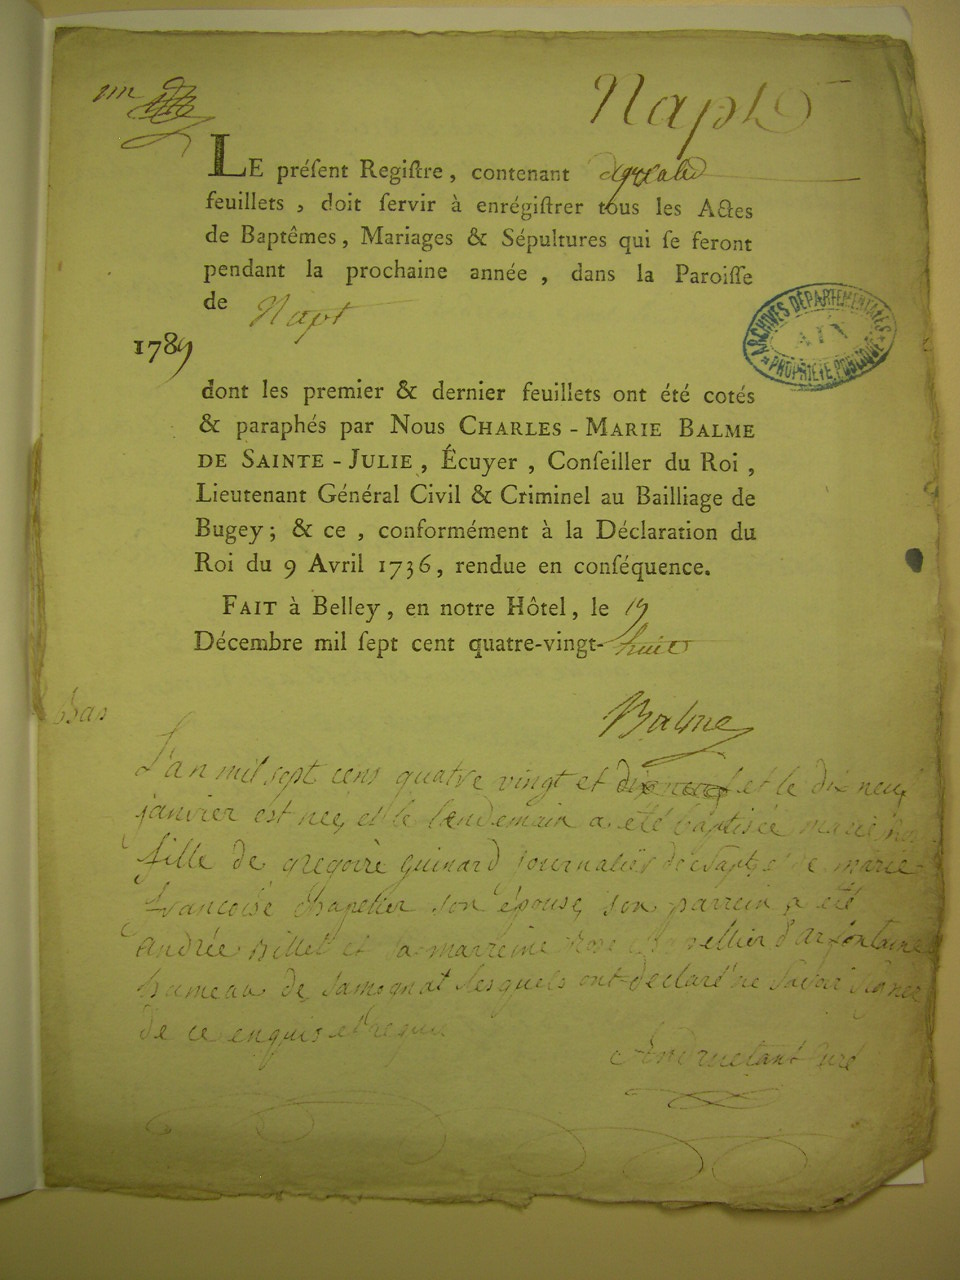 Napt
LE préſent Regiſtre, contenant
feuillets, doit ſervir à enrégiſtrer tous les Actes
de Baptêmes, Mariages & Sépultures qui ſe feront
pendant la prochaine année, dans la Paroiſſe
de Napt
1789
ARCHIVES DÉPARTEMENTALES
AIN
PROPRIÉTÉ PUBLIQUE
dont les premier & dernier feuillets ont été cotés
& paraphés par Nous CHARLES-MARIE BALME
DE SAINTE-JULIE, Écuyer, Conſeiller du Roi,
Lieutenant Général Civil & Criminel au Bailliage de
Bugey; & ce, conformément à la Déclaration du
Roi du 9 Avril 1736, rendue en conſéquence.
FAIT à Belley, en notre Hôtel, le 19
Décembre mil ſept cent quatre-vingt-huit
Balme
Bas
L'an mil sept cens quatre vingt et neuf et le dix neuf
janvier est née, et le lendemain a été baptisée marie
fille de gregoire guinard journalier de Napt, et de marie
françoise chapelier son épouse, son parrein a été
andrée Billet et sa marreine Rose chapellier d'arfontaine
hameau de samognat lesquels ont declaré ne savoir signer
de ce enquis et requis
Andruetant Curé